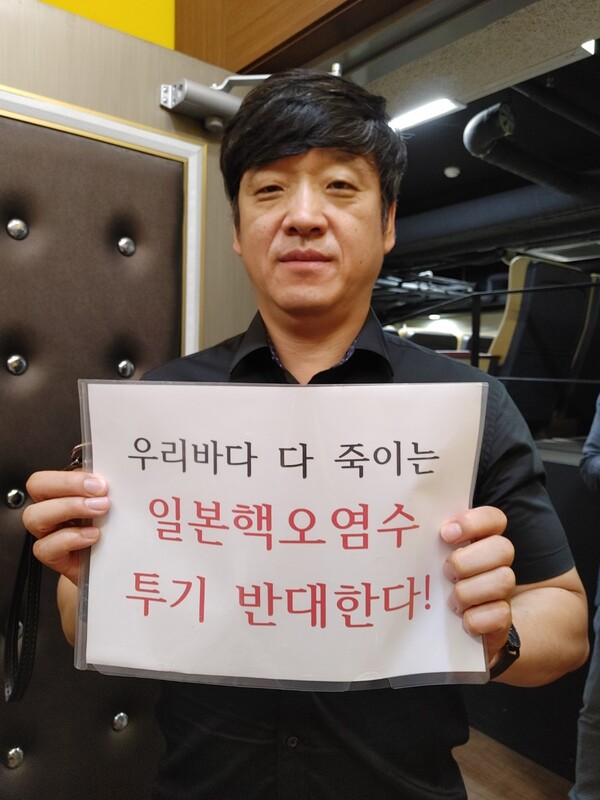 우리바다 다 죽이는
일본핵오염수
투기 반대한다!